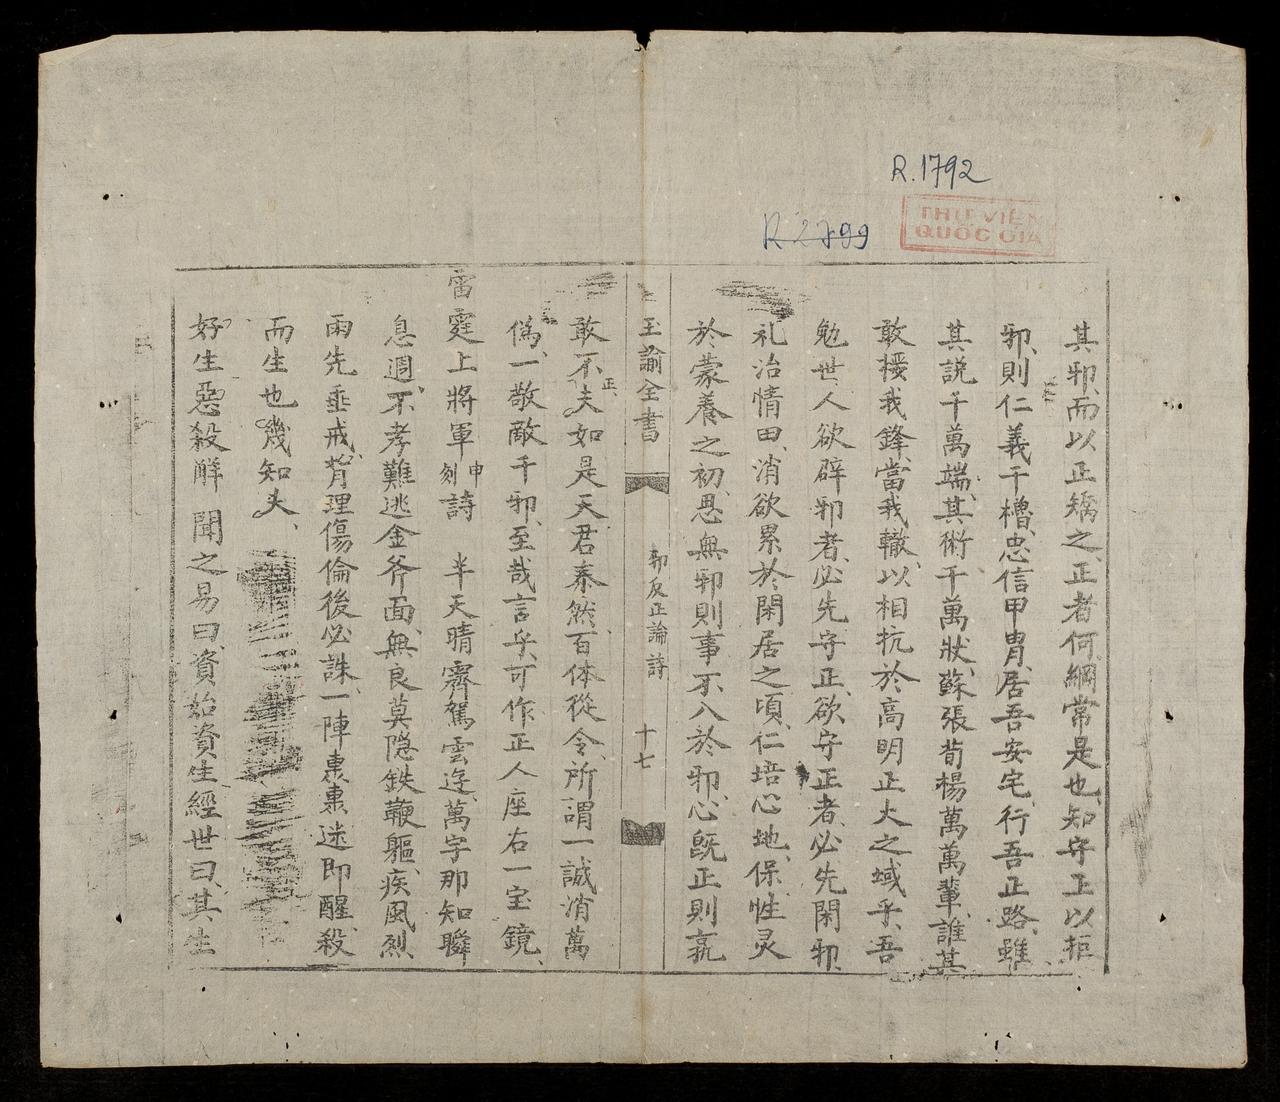 R.1792
THƯ VIỆN
QUỐC GIA
R 2799
其邪、而以正矯之、正者何、綱常是也、知守正以拒
邪、則仁義干櫓、忠信甲冑、居吾安宅、行吾正路、雖
其説千萬端、其術千萬狀、蘇張荀楊萬萬輩、誰其
敢櫻我鋒、當我轍、以相抗於高明正大之域乎、吾
勉世人欲辟邪者、必先守正、欲守正者、必先閑邪、
礼治情田、消欲累於閑居之頃、仁培心地、保性灵
於蒙養之初、思無邪則事不入於邪、心既正則孰
玉諭全書 邪反正論詩 十七
敢不正、夫如是天君泰然、百体從令、所謂一誠消萬
僞、一敬敵千邪、至哉言乎、可作正人座右一宝鏡、
雷霆上將軍申刻詩 半天晴霽駕雲迻、萬字那知瞬
息週、不孝難逃金斧面、無良莫隐鉄鞭軀、疾風烈
雨先垂戒、背理傷倫後必誅、一陣轟轟迷即醒、殺
而生也幾知夫、
好生惡殺解 聞之易曰、資始資生、經世曰、其生